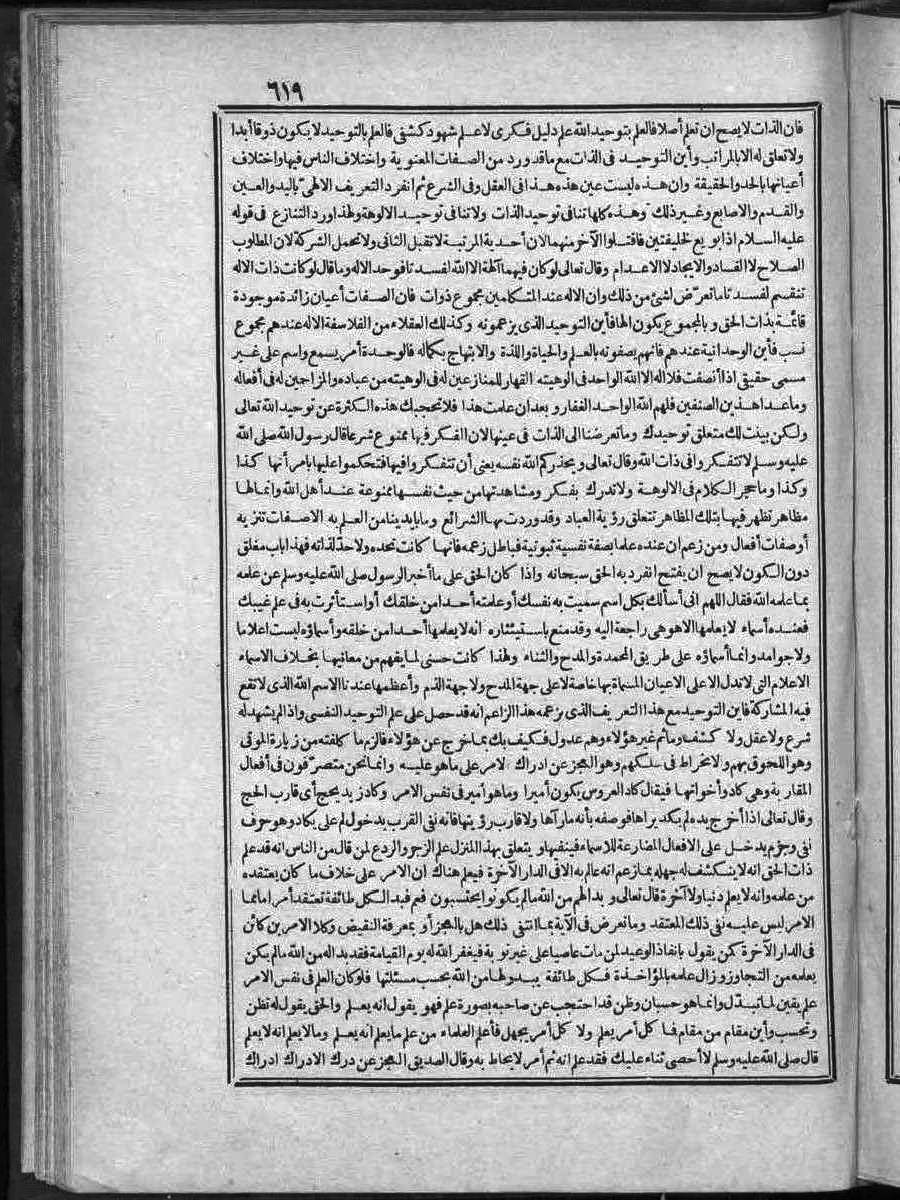 ٦١٩
فان الذات لا يصح ان تعلم أصلا فالعلم بتوحيد الله علم دليل فكرى لا علم شهود كشفى فالعلم بالتوحيد لا يكون ذوقا أبدا
ولا تعلق له الا بالمراتب وأين التوحيد فى الذات مع ما قد ورد من الصفات المعنوية واختلاف الناس فيها واختلاف
أعيانها بالحد والحقيقة وان هذه ليست عين هذه هذا فى العقل وفى الشرع ثم انفرد التعريف الالهىّ باليد والعين
والقدم والاصابع وغير ذلك وهذه كلها تنافى توحيد الذات ولا تنافى توحيد الالوهة ولهذا ورد التنازع فى قوله
عليه السلام اذا بويع لخليفتين فاقتلوا الآخر منهما لان أحدية المرتبة لا تقبل الثانى ولا تحمل الشركة لان المطلوب
الصلاح لا الفساد والايجاد لا الاعدام وقال تعالى لو كان فيهما آلهة الا الله لفسدتا فوحد الاله وما قال لو كانت ذات الاله
تنقسم لفسدتا ما تعرّض لشئ من ذلك وان الاله عند المتكلمين مجموع ذوات فان الصفات أعيان زائدة موجودة
قائمة بذات الحق وبالمجموع يكون الها فأين التوحيد الذى يزعمونه وكذلك العقلاء من الفلاسفة الاله عندهم مجموع
نسب فأين الوحدانية عندهم فانهم يصفونه بالعلم والحياة واللذة والابتهاج بكماله فالوحدة أمر يسمع واسم على غير
مسمى حقيقى اذا أنصفت فلا اله الا الله الواحد فى الوهيته القهار للمنازعين له فى الوهيته من عباده والمزاحمين له فى أفعاله
وما عدا هذين الصنفين فلهم الله الواحد الغفار وبعد ان علمت هذا فلا تحجبك هذه الكثرة عن توحيد الله تعالى
ولكن بينت لك متعلق توحيدك وما تعرضنا الى الذات فى عينها لان الفكر فيها ممنوع شرعا قال رسول الله صلى الله
عليه وسلم لا تتفكروا فى ذات الله وقال تعالى ويحذركم الله نفسه يعنى أن تتفكروا فيها فتحكموا عليها بأمر أنها كذا
وكذا وما حجر الكلام فى الالوهة ولا تدرك بفكر ومشاهدتها من حيث نفسها ممنوعة عند أهل الله وانما لها
مظاهر تظهر فيها بتلك المظاهر تتعلق رؤية العباد وقد وردت بها الشرائع وما بأيدينا من العلم به الا صفات تنزيه
أو صفات أفعال ومن زعم ان عنده علما بصفة نفسية ثبوتية فباطل زعمه فانها كانت تحده ولا حدّ لذاته فهذا باب مغلق
دون الكون لا يصح ان يفتح انفرد به الحق سبحانه واذا كان الحق على ما أخبر الرسول صلى الله عليه وسلم عن علمه
بما علمه الله فقال اللهم انى أسألك بكل اسم سميت به نفسك أو علمته أحدا من خلقك أو استأثرت به فى علم غيبك
فعنده أسماء لا يعلمها الا هو هى راجعة اليه وقد منع باستيثاره انه لا يعلمها أحدا من خلقه وأسماؤه ليست اعلاما
ولا جوامد وانما أسماؤه على طريق المحمدة والمدح والثناء ولهذا كانت حسنى لما يفهم من معانيها بخلاف الاسماء
الاعلام التى لا تدل الا على الاعيان المسماة بها خاصة لا على جهة المدح ولا جهة الذم وأعظمها عندنا الاسم الله الذى لا تقع
فيه المشاركة فأين التوحيد مع هذا التعريف الذى يزعمه هذا الزاعم انه قد حصل على علم التوحيد النفسى واذا لم يشهد له
شرع ولا عقل ولا كشف وما ثم غير هؤلاء وهم عدول فكيف بك بما خرج عن هؤلاء فالزم ما كلفته من زيارة الموتى
وهو اللحوق بهم والانخراط فى سلكهم وهو العجز عن ادراك الامر على ما هو عليه وانما نحن متصرّفون فى أفعال
المقاربة وهى كاد وأخواتها فيقال كاد العروس يكون أميرا وما هو أمير فى نفس الامر وكاد زيد يحج أى قارب الحج
وقال تعالى اذا أخرج يده لم يكد يراها فوصفه بأنه ما رآها ولا قارب رؤيتها فانه نفى القرب بدخول لم على يكاد وهو حرف
نفى وجزم يدخل على الافعال المضارعة للاسماء فينفيها ويتعلق بهذا المنزل علم الزجر والردع لمن قال من الناس انه قد علم
ذات الحق انه لا ينكشف له جهله بما زعم انه عالم به الا فى الدار الآخرة فيعلم هناك ان الامر على خلاف ما كان يعتقده
من علمه وانه لا يعلم دنيا ولا آخرة قال تعالى وبدا لهم من الله ما لم يكونوا يحتسبون فعم فبد الكل طائفة تعتقد أمر اما مما
الامر ليس عليه نفى ذلك المعتقد وما تعرض فى الآية بما انتفى ذلك هل بالعجز أو بمعرفة النقيض وكلا الامرين كائن
فى الدار الآخرة كمن يقول بانفاذ الوعيد لمن مات عاصيا على غير توبة فيغفر الله له يوم القيامة فقد بدا له من الله ما لم يكن
يعلمه من التجاوز وزال علمه بالمؤاخذة فكل طائفة يبدو لها من الله بحسب مسئلتها فلو كان العلم فى نفس الامر
علم يقين لما تبدّل وانما هو حسبان وظن قد احتجب عن صاحبه بصورة علم فهو يقول انه يعلم والحق يقول له تظن
وتحسب وأين مقام من مقام فما كل أمر يعلم ولا كل أمر يجهل فأعلم العلماء من علم ما يعلم انه يعلم وما لا يعلم انه لا يعلم
قال صلى الله عليه وسلم لا أحصى ثناء عليك فقد علم انه ثم أمر لا يحاط به وقال الصديق العجز عن درك الادراك ادراك